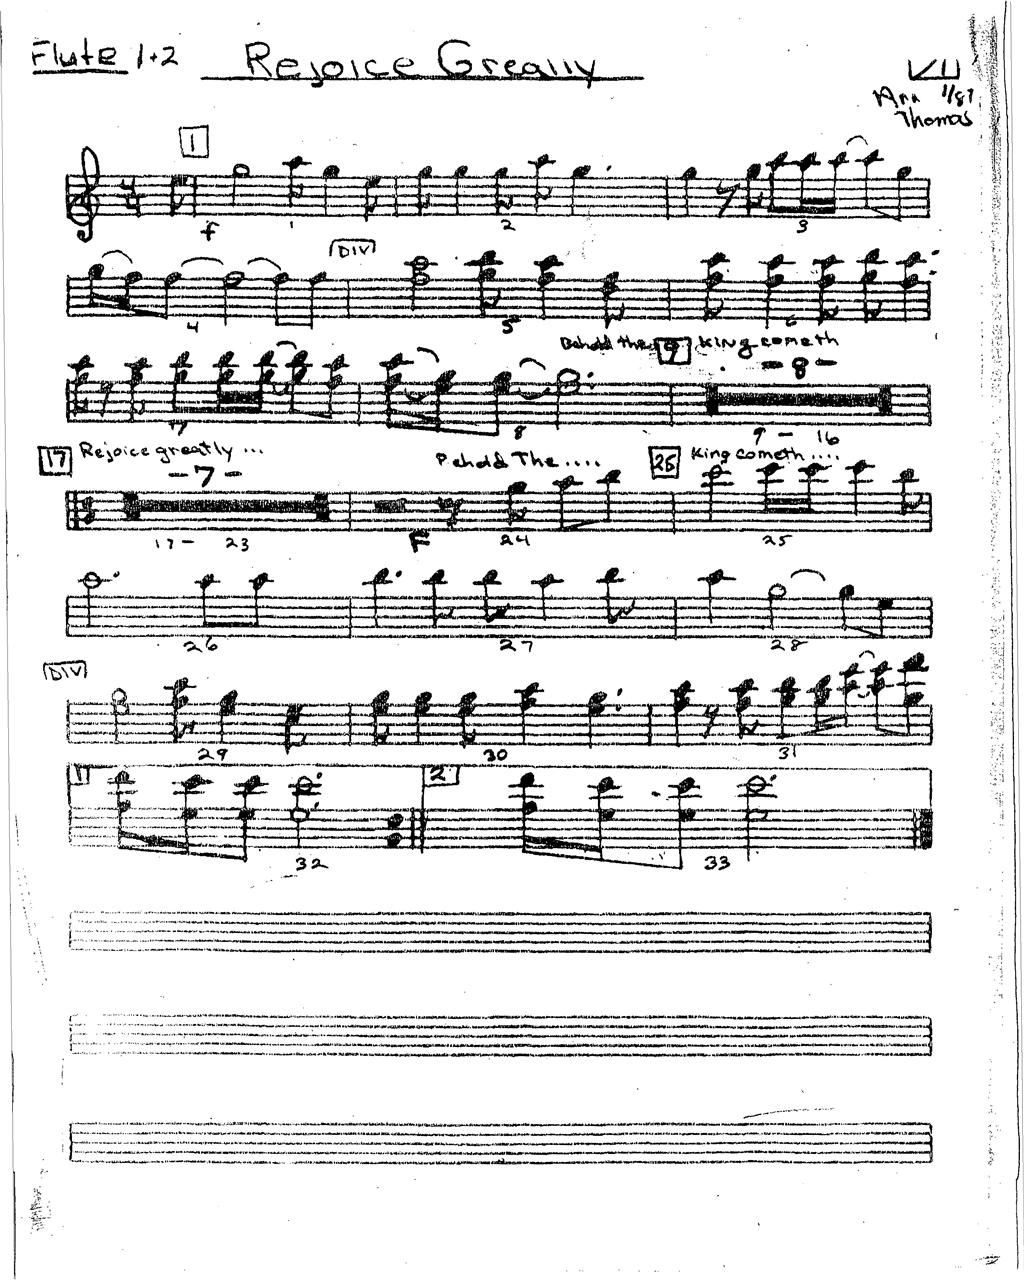 Flute 1+2 Rejoice Greatly VII
Ann 1/87
Thomas
1
f 1 2 3
DIV
4 5 6
Behold the 9 King cometh
-8-
7 8 9 - 16
17 Rejoice greatly ...
-7-
Behold The .... 25 King cometh ....
17 - 23 F 24 25
26 27 28
DIV
29 30 31
1 2
32 33